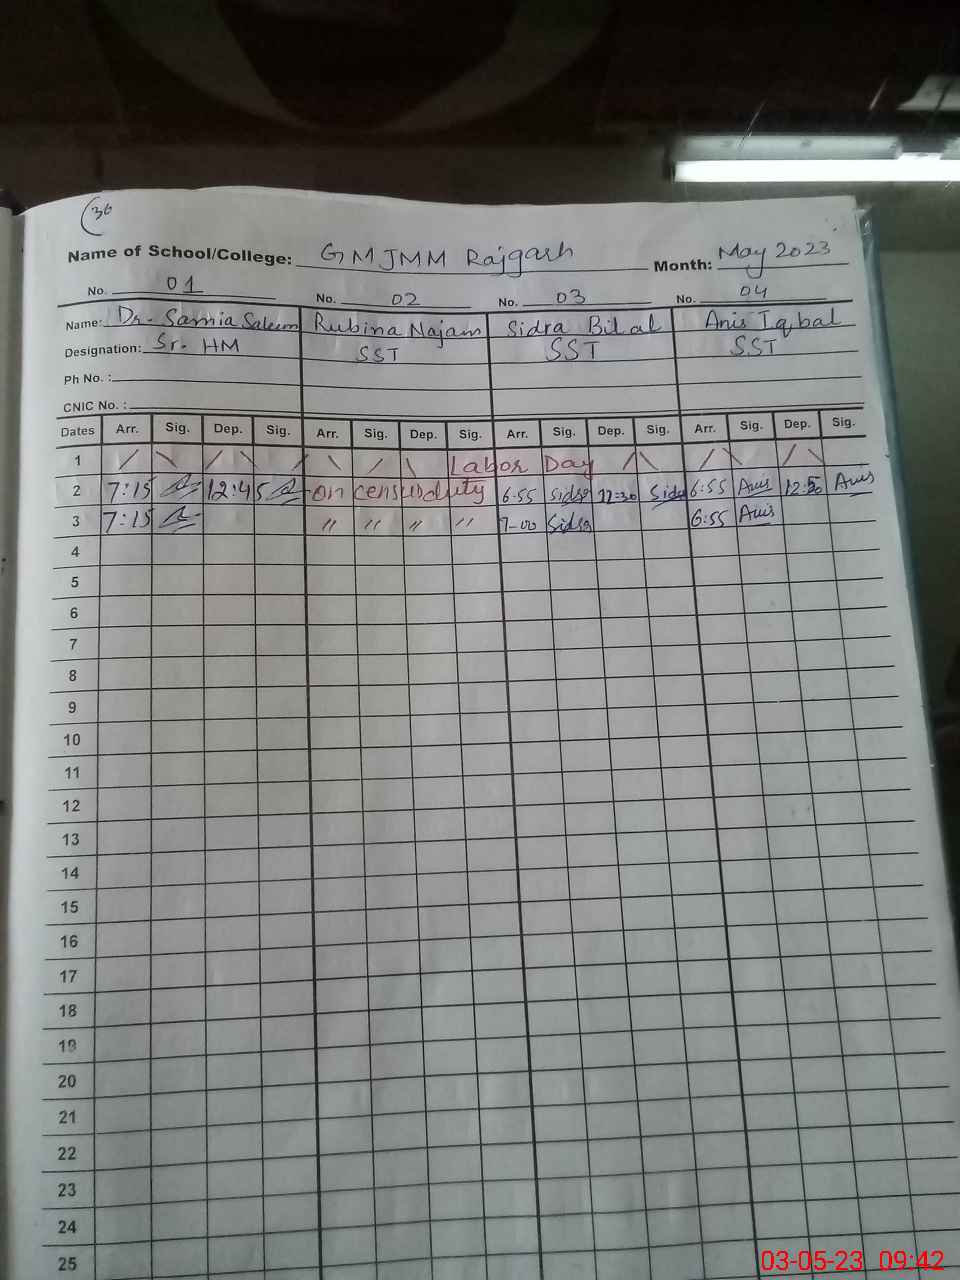 36
Name of School/College: GMJMM Rajgarh Month: May 2023
No. 01 No. 02 No. 03 No. 04
Name: Dr. Samia Saleem Rubina Najam Sidra Bilal Anis Iqbal
Designation: Sr. HM SST SST SST
Ph No. :
CNIC No. :
Dates Arr. Sig. Dep. Sig. Arr. Sig. Dep. Sig. Arr. Sig. Dep. Sig. Arr. Sig. Dep. Sig.
1 / \ / \ / \ / \ Labor Day / \ / \ / \
2 7:15 12:45 on census duty 6:55 Sidra 12:30 Sidra 6:55 Anis 12:50 Anis
3 7:15 " " " " 7-00 Sidra 6:55 Anis
4
5
6
7
8
9
10
11
12
13
14
15
16
17
18
19
20
21
22
23
24
25
03-05-23 09:42